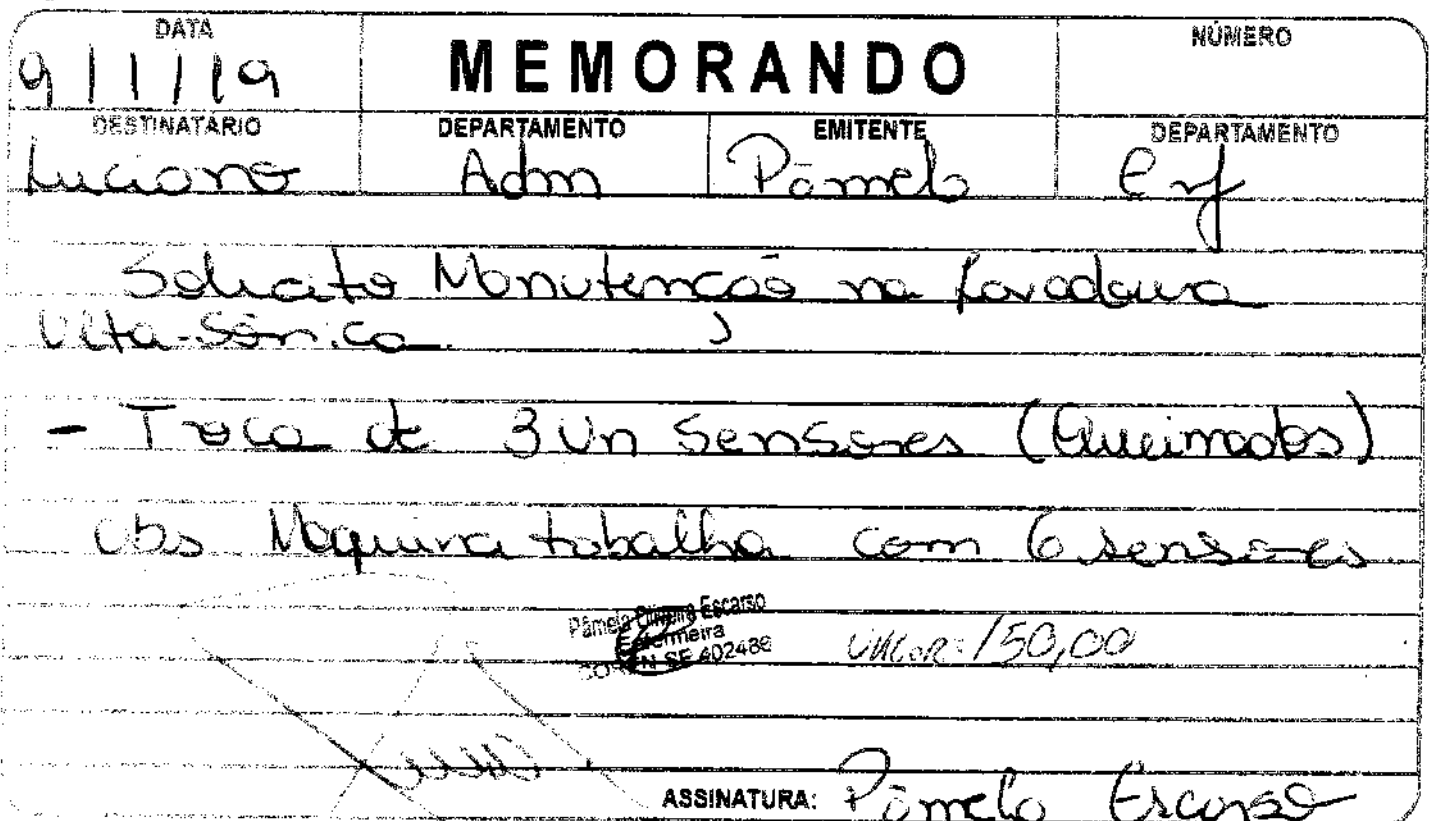 DATA
9/1/19
MEMORANDO
NÚMERO
DESTINATÁRIO
Luciano
DEPARTAMENTO
Adm
EMITENTE
Pâmela
DEPARTAMENTO
Enf
Solicito Manutenção na Lavadoura
Ultra-Sônica.
- Troca de 3 Un Sensores (Queimados)
Obs Maquina trabalha com 6 sensores.
Pâmela Oliveira Escarso
Enfermeira
COREN-SE 402486
VALOR: 150,00
ASSINATURA: Pâmela Escarso